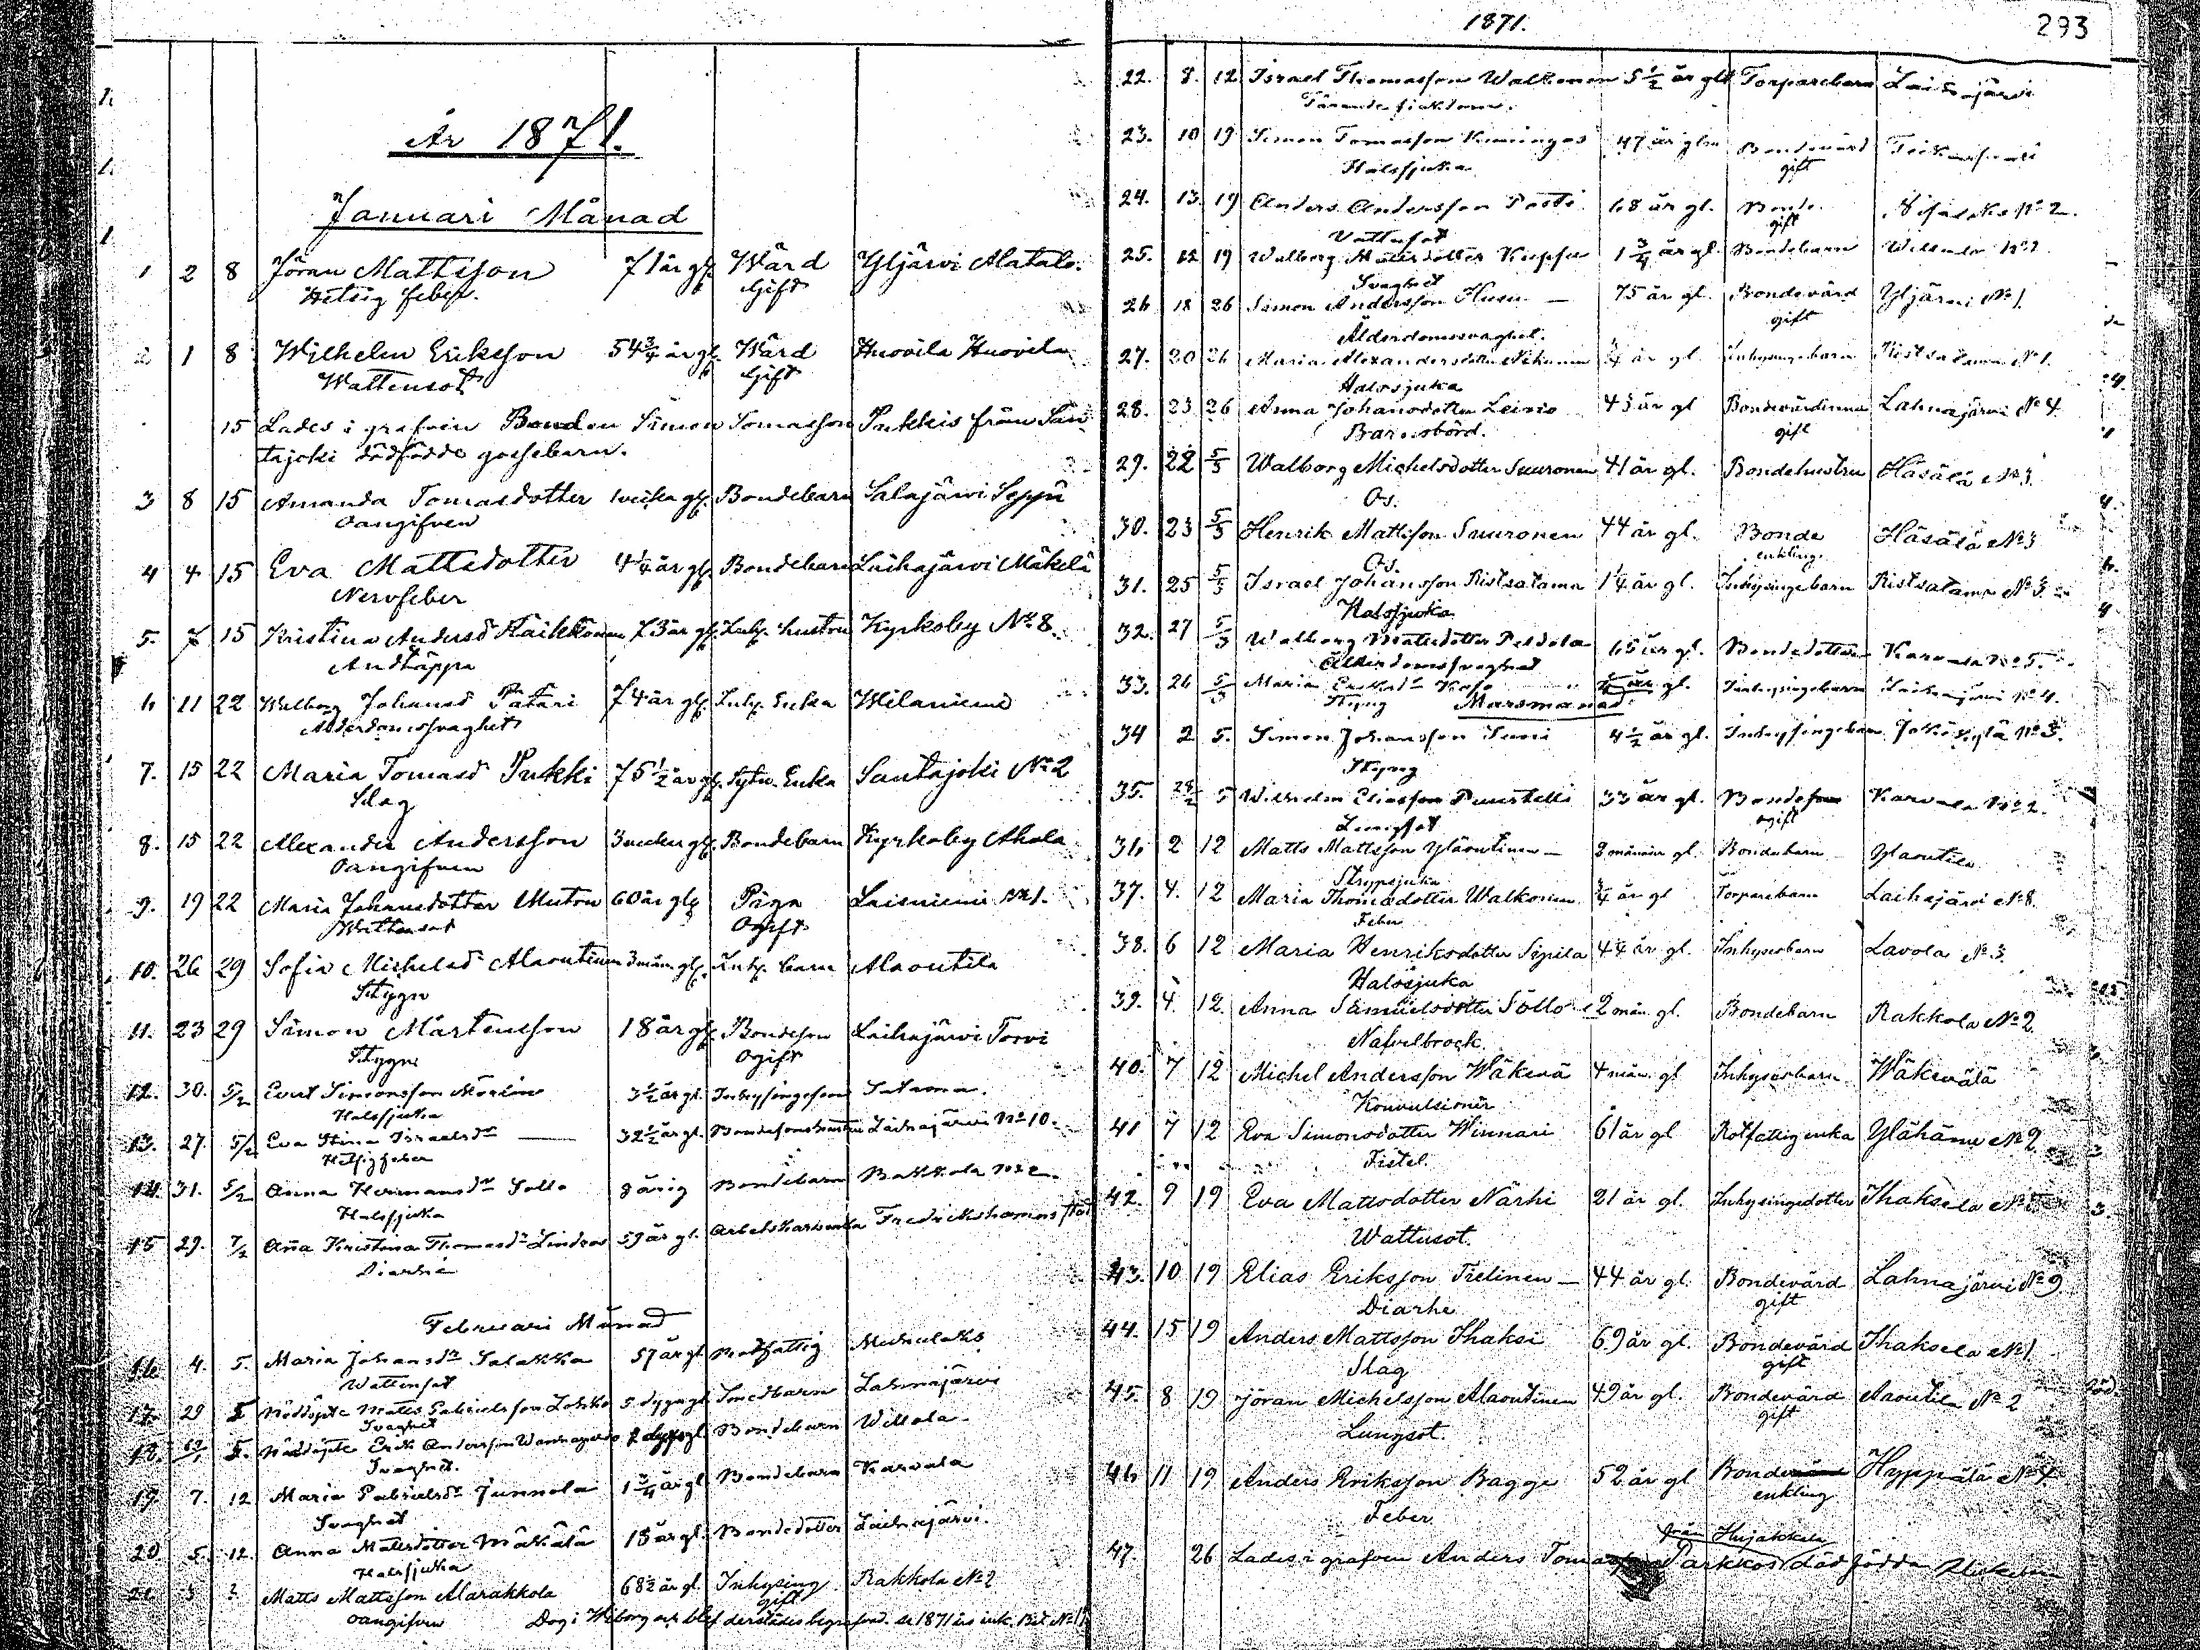 År 1871.
Januari Månad
1 2 8 Jöran Mattsson 71 år gl. Wärd Yljärvi Alatalo.
Hetsig feber. Gift
2 1 8 Wilhelm Eriksson 54 3/4 år gl. Wärd Huovila Huovila
Wattensot Gift
15 Lades i grafven Bonden Simon Tomasson Pukkis från San
tajoki dödfödde gossebarn.
3 8 15 Amanda Tomasdotter 1 vecka gl. Bondebarn Salajärvi Seppä
Oangifven
4 4 15 Eva Mattsdotter 4 1/4 år gl. Bondebarn Laihajärvi Mäkelä
Nervfeber
5. 7 15 Kristina Andersd. Räikkönen 73 år gl. Inh. hustru Kyrkoby No 8.
Andtäppa
6 11 22 Walborg Johansd. Patari 74 år gl. Inh. Enka Wilaniemi
Ålderdomssvaghet
7. 15 22 Maria Tomasd. Pukki 75 1/2 år gl. Sytn. Enka Santajoki No 2
Slag
8. 15 22 Alexander Andersson 3 veckor gl. Bondebarn Kyrkoby Ahola
Oangifven
9. 19 22 Maria Johansdotter Muton 60 år gl. Piga Laisniemi No 1.
Wattensot Ogift
10. 26 29 Sofia Michelsd. Alaoutinen 3 mån. gl. Inh. barn Alaoutila
Stygn
11. 23 29 Simon Mårtensson 18 år gl. Bondeson Laihajärvi Torvi
Stygn Ogift
12. 30. 5/2 Evert Simonsson 3 1/2 år gl. Inhysingeson
Halssjuka
13. 27. 5/2 Eva Stina Israelsdr 32 1/2 år gl. Bondesonshustru Laihajärvi No 10.
Hetsig feber
14. 31. 5/2 Anna Hermansdr Sollo 8 årig Bondebarn Rakkola No 2
Halssjuka
15 29. 7/2 Aña Kristina Thomasdr Lindroos 59 år gl. Arbetskarlsenka Fredrikshamns stad
Diarhie
Februari Månad
16 4. 5. Maria Johansdr Salakka 57 år gl. Rotfattig Muhulaks
Wattensot
17. 29 5 Nöddöpte Matts Gabrielsson 5 dygn gl. Bondebarn Lahnajärvi
Svaghet
18. 5. Nöddöpte Erik Andersson 2 dygn gl. Bondebarn Willala
Svaghet.
19 7. 12 Maria Gabrielsdr Junnola 1 3/4 år gl. Bondebarn Karvala
Svaghet
20 5. 12. Anna Mattsdotter Mäkälä 18 år gl. Bondedotter Laihajärvi.
Halssjuka
21 3 Matts Mattsson Alarakkola 68 1/2 år gl. Inhysing Rakkola No 2
Oangifven gift
Dog i Wiborg och blef derstädes begrafved. se 1871 års ink. Bil. No 11
1871.
293
22. 8. 12 Israel Thomasson Walkonen 5 1/2 år gl. Torparebarn Laihajärvi
23. 10 19 Simon Tomasson Kuningas 47 år glm Bondevärd
Halssjuka gift
24. 13. 19 Anders Andersson Posti 68 år gl. Bonde No 2.
Vattusot gift
25. 12 19 Walborg Mattsdotter 1 3/4 år gl. Bondebarn Willala No 2
Svaghet
26 18 26 Simon Andersson Husu 75 år gl. Bondevärd Yljärvi No 1.
Ålderdomssvaghet. gift
27. 20 26 Maria Alexandersdotter 3/4 år gl. Inhysingebarn Ristsatama No 1.
Halssjuka
28. 23 26 Anna Johansdotter Leinio 43 år gl Bondevärdinna Lahnajärvi No 4.
Barnsbörd. gift
29. 22 5/3 Walborg Michelsdotter Suuronen 41 år gl. Bondehustru Häsälä No 3.
Os.
30. 23 5/3 Henrik Mattsson Suuronen 44 år gl. Bonde Häsälä No 3
Os. enkling.
31. 25 5/3 Israel Johansson Ristsatama 1 1/4 år gl. Inhysingebarn Ristsatama No 3.
Halssjuka
32. 27 5/3 Walborg Mattsdotter Peldola 65 år gl. Bondedotter Karvala No 5.
Ålderdomssvaghet
33. 26 5/3 Maria Eriksdr år gl. Inhysingebarn Laihajärvi No 4.
Stygn
Marsmånad
34 2 5. Simon Johansson Suni 4 1/2 år gl. Inhysingebarn No 3.
Stygn
35. 28/2 5 Wilhelm Eliasson Puustelli 33 år gl. Bondeson Karvala No 2.
Lungsot ogift
36 2 12 Matts Mattsson Yläoutinen 8 månader gl. Bondebarn Ylaoutila
Strypsjuka
37. 4. 12 Maria Thomasdotter Walkonen 3/4 år gl Torparebarn Laihajärvi No 8.
Feber
38. 6 12 Maria Henriksdotter Sipila 44 år gl. Inhysesbarn Lavola No 3.
Halssjuka
39. 4 12. Anna Samuelsdotter Sollo 2 mån. gl. Bondebarn Rakkola No 2.
Nafvelbrock.
40. 7 12 Michel Andersson Wäkevä 4 mån. gl Inhysesbarn Wäkevälä
Konvulsioner
41 7 12 Eva Simonsdotter Winnari 61 år gl Rotfattig enka Ylähäme No 2
Fistel.
42. 9 19 Eva Mattsdotter Närhi 21 år gl. Inhysingedotter Ihaksela
Wattusot.
43. 10 19 Elias Eriksson Tielinen 44 år gl. Bondevärd Lahnajärvi No 9
Diarhe gift
44. 15 19 Anders Mattsson Ihaksi 69 år gl. Bondevärd Ihaksela No 1.
Slag gift
45. 8 19 Jöran Michelsson Alaoutinen 49 år gl. Bondevärd Aaoutila No 2
Lungsot. gift
46 11 19 Anders Eriksson Bagge 52 år gl Bonde Hyppälä No 4.
Feber enkling
från Hujakkala
47. 26 Lades i grafven Anders Tomasson Parkkos död födda